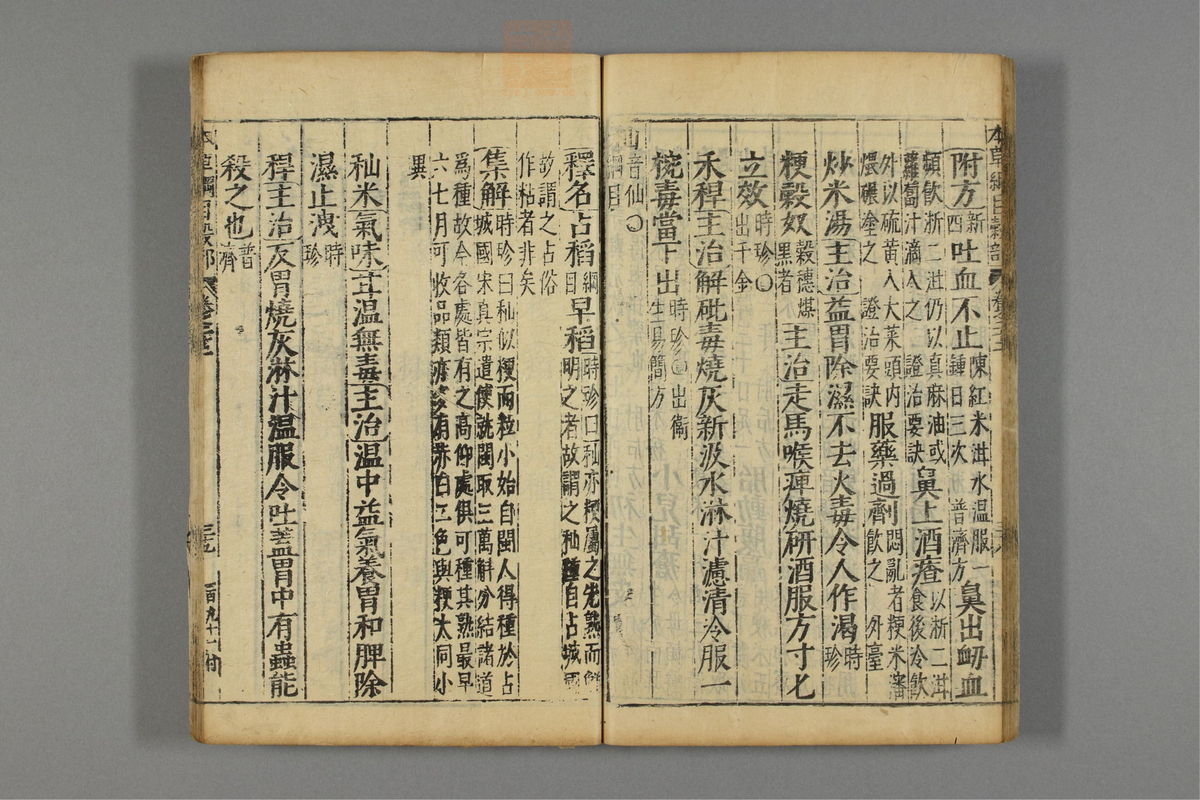 附方新四吐血不止陳紅米泔水溫服一鍾日三次 普濟方鼻出衂血
頓飲淅二泔仍以真麻油或蘿蔔汁滴入之 證治要訣鼻上酒瘡以淅二泔食後冷飲
外以硫黃入大菜頭內煨碾塗之 證治要訣服藥過劑悶亂者粳米瀋飲之 外臺
炒米湯主治益胃除濕不去火毒令人作渴時珍
粳穀奴穀穗煤黑者主治走馬喉痺燒研酒服方寸匕
立效時珍〇出千金
禾稈主治解砒毒燒灰新汲水淋汁濾清冷服一
椀毒當下出時珍〇出衞生易簡方
山音仙〇綱目
釋名占稻綱目早稻時珍曰秈亦粳屬之先熟而鮮明之者故謂之秈種自占城國
故謂之占俗作粘者非矣
集解時珍曰秈似粳而粒小始自閩人得種於占城國宋真宗遣使就閩取三萬斛分給諸道
爲種故今各處皆有之高仰處俱可種其熟最早六七月可收品類亦多有赤白二色與粳大同小
異
秈米氣味甘溫無毒主治溫中益氣養胃和脾除
濕止洩時珍
稈主治反胃燒灰淋汁溫服令吐蓋胃中有蟲能
殺之也普濟